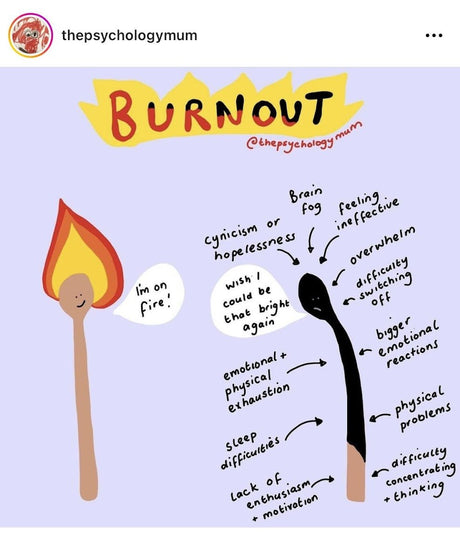 thepsychologymum
BURNOUT
@thepsychologymum
I'm on
fire!
wish I
could be
that bright
again
cynicism or
hopelessness
Brain
fog
feeling
ineffective
overwhelm
difficulty
switching
off
bigger
emotional
reactions
physical
problems
difficulty
concentrating
+ thinking
emotional +
physical
exhaustion
sleep
difficulties
lack of
enthusiasm
+ motivation